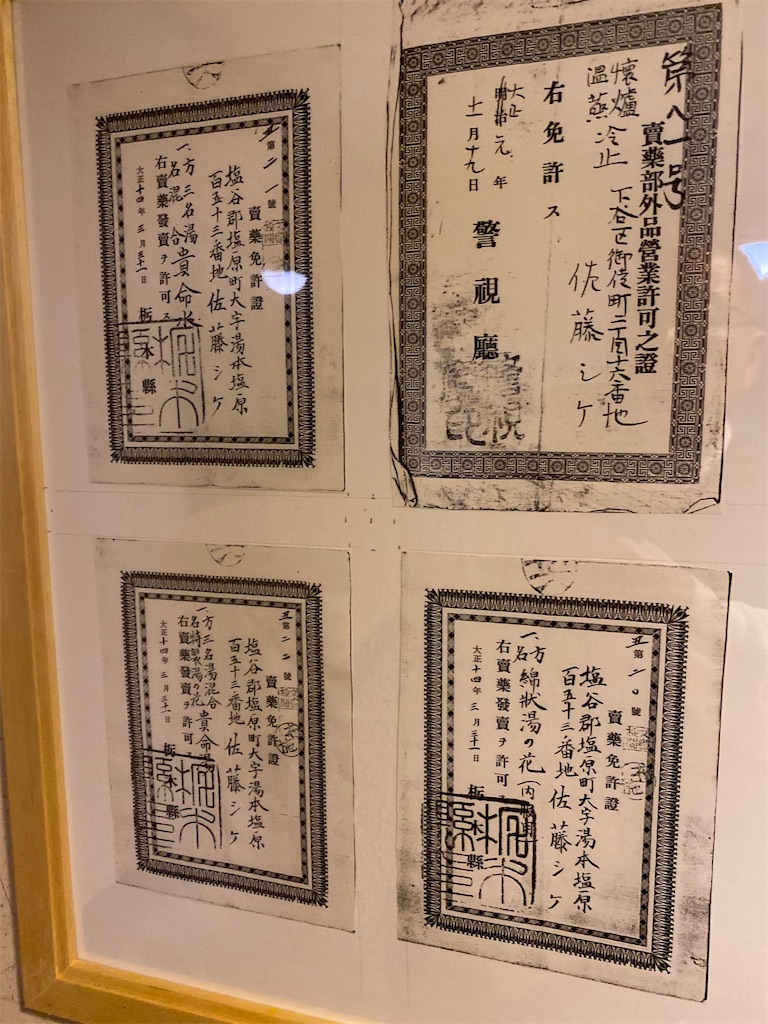 第八一号
賣藥部外品營業許可之證
下谷区御徒町三丁目十六番地
佐藤シケ
懷爐
溫蒸冷止
右免許ス
大正
明治元年
十一月十九日
警視廳
丑第二一號
賣藥免許證
塩谷郡塩原町大字湯本塩原
百五十三番地佐藤シケ
一、方三名湯貴命水
名混合
右賣藥發賣ヲ許可ス
大正十四年三月三十一日
栃木縣
丑第二〇號
賣藥免許證
塩谷郡塩原町大字湯本塩原
百五十三番地佐藤シケ
一、方
名綿狀湯の花(内
右賣藥發賣ヲ許可
大正十四年三月三十一日
栃木縣
丑第二二號
賣藥免許證
塩谷郡塩原町大字湯本塩原
百五十三番地佐藤シケ
一、方三名湯混合貴命
名特製湯の花
右賣藥發賣ヲ許可ス
大正十四年三月三十一日
栃木縣